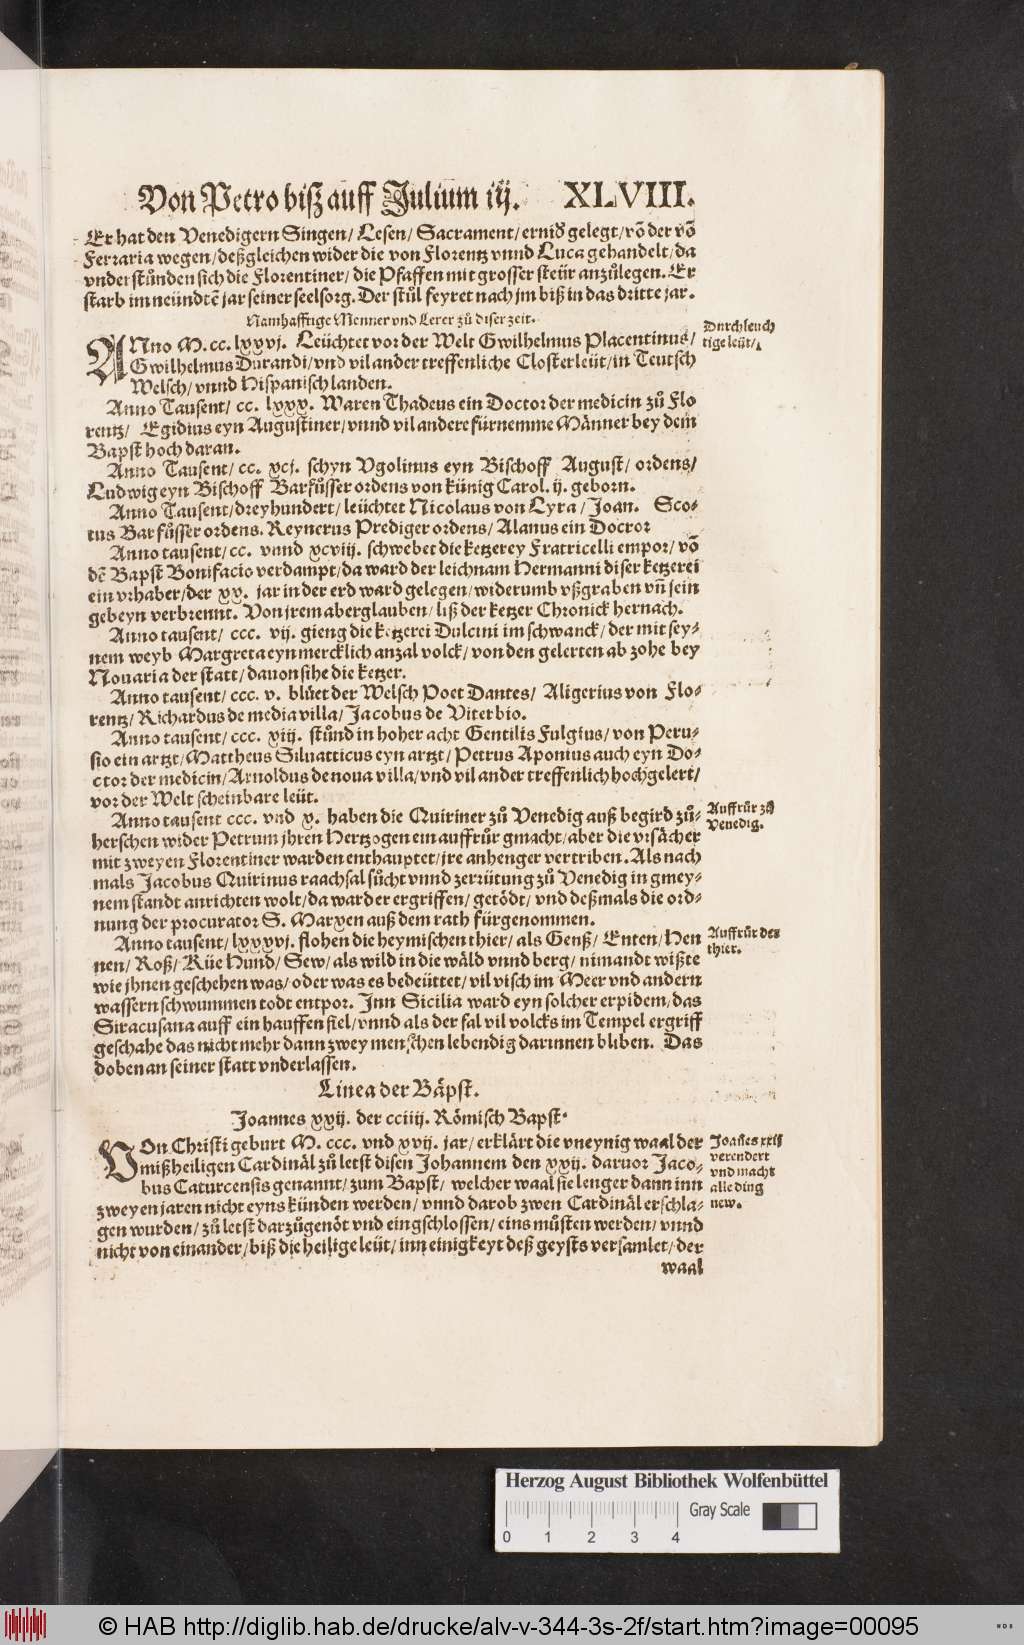 Von Petro biß auff Julium iij. XLVIII.
Er hat den Venedigern Singen/ Lesen/ Sacrament/ ernid gelegt/ võ der võ
Ferraria wegen/ deßgleichen wider die von Florentz vnnd Luca gehandelt/ da
vnderstůnden sich die Florentiner/ die Pfaffen mit grosser steür anzůlegen. Er
starb im neündtẽ jar seiner seelsorg. Der stůl feyret nach jm biß in das dritte jar.
Namhafftige Menner vnd Lerer zů diser zeit.
ANno M. cc. lxxvj. Leüchtet vor der Welt Gwilhelmus Placentinus/
Gwilhelmus Durandi/ vnd vil ander treffenliche Closterleüt/ in Teutsch
Welsch/ vnnd Hispanisch landen.
Durchleuch
tige leüt/
Anno Tausent/ cc. lxxx. Waren Thadeus ein Doctor der medicin zů Flo
rentz/ Egidius eyn Augustiner/ vnnd vil andere fürnemme Männer bey dem
Bapst hoch daran.
Anno Tausent/ cc. xcj. schyn Vgolinus eyn Bischoff August/ ordens/
Ludwig eyn Bischoff Barfůsser ordens von künig Carol. ij. geborn.
Anno Tausent/ dreyhundert/ leüchtet Nicolaus von Lyra/ Joan. Sco-
tus Barfůsser ordens. Reynerus Prediger ordens/ Alanus ein Doctor
Anno tausent/ cc. vnnd xcviij. schwebet die ketzerey Fratricelli empor/ võ
dẽ Bapst Bonifacio verdampt/ da ward der leichnam Hermanni diser ketzerei
ein vrhaber/ der xx. jar in der erd ward gelegen/ widerumb vßgraben vñ sein
gebeyn verbrennt. Von jrem aberglauben/ liß der ketzer Chronick hernach.
Anno tausent/ ccc. vij. gieng die ketzerei Dulcini im schwanck/ der mit sey-
nem weyb Margreta eyn mercklich anzal volck/ von den gelerten ab zohe bey
Nouaria der statt/ dauon sihe die ketzer.
Anno tausent/ ccc. v. blůet der Welsch Poet Dantes/ Aligerius von Flo-
rentz/ Richardus de media villa/ Jacobus de Viterbio.
Anno tausent/ ccc. xiij. stůnd in hoher acht Gentilis Fulgius/ von Peru-
sio ein artzt/ Mattheus Siluatticus eyn artzt/ Petrus Aponius auch eyn Do-
ctor der medicin/ Arnoldus de noua villa/ vnd vil ander treffenlich hochgelert/
vor der Welt scheinbare leüt.
Anno tausent ccc. vnd x. haben die Quiriner zů Venedig auß begird zů-
herschen wider Petrum jhren Hertzogen ein auffrůr gmacht/ aber die vrsächer
mit zweyen Florentiner warden enthauptet/ jre anhenger vertriben. Als nach
mals Jacobus Quirinus raachsal sůcht vnnd zerrütung zů Venedig in gmey-
nem standt anrichten wolt/ da ward er ergriffen/ getödt/ vnd deßmals die ord-
nung der procurator S. Marxen auß dem rath fürgenommen.
Auffrůr zů
Venedig.
Anno tausent/ lxxxvj. flohen die heymischen thier/ als Genß/ Enten/ Hen
nen/ Roß/ Küe Hund/ Sew/ als wild in die wäld vnnd berg/ nimandt wißte
wie jhnen geschehen was/ oder was es bedeüttet/ vil visch im Meer vnd andern
wassern schwummen todt entpor. Jnn Sicilia ward eyn solcher erpidem/ das
Siracusana auff ein hauffen fiel/ vnnd als der fal vil volcks im Tempel ergriff
geschahe das nicht mehr dann zwey menschen lebendig darinnen bliben. Das
doben an seiner statt vnderlassen.
Auffrůr der
thier.
Linea der Bäpst.
Joannes xxij. der cciiij. Römisch Bapst.
VOn Christi geburt M. ccc. vnd xvij. jar/ erklärt die vneynig waal der
mißheiligen Cardinäl zů letst disen Johannem den xxij. daruor Jaco-
bus Caturcensis genannt/ zum Bapst/ welcher waal sie lenger dann inn
zweyen jaren nicht eyns künden werden/ vnnd darob zwen Cardinäl erschla-
gen wurden/ zů letst darzůgenöt vnd eingschlossen/ eins můsten werden/ vnnd
nicht von einander/ biß die heilige leüt/ inn einigkeyt deß geysts versamlet/ der
waal
Joañes xxij
verendert
vnd macht
alle ding
new.
Herzog August Bibliothek Wolfenbüttel
Gray Scale
0 1 2 3 4
© HAB http://diglib.hab.de/drucke/alv-v-344-3s-2f/start.htm?image=00095